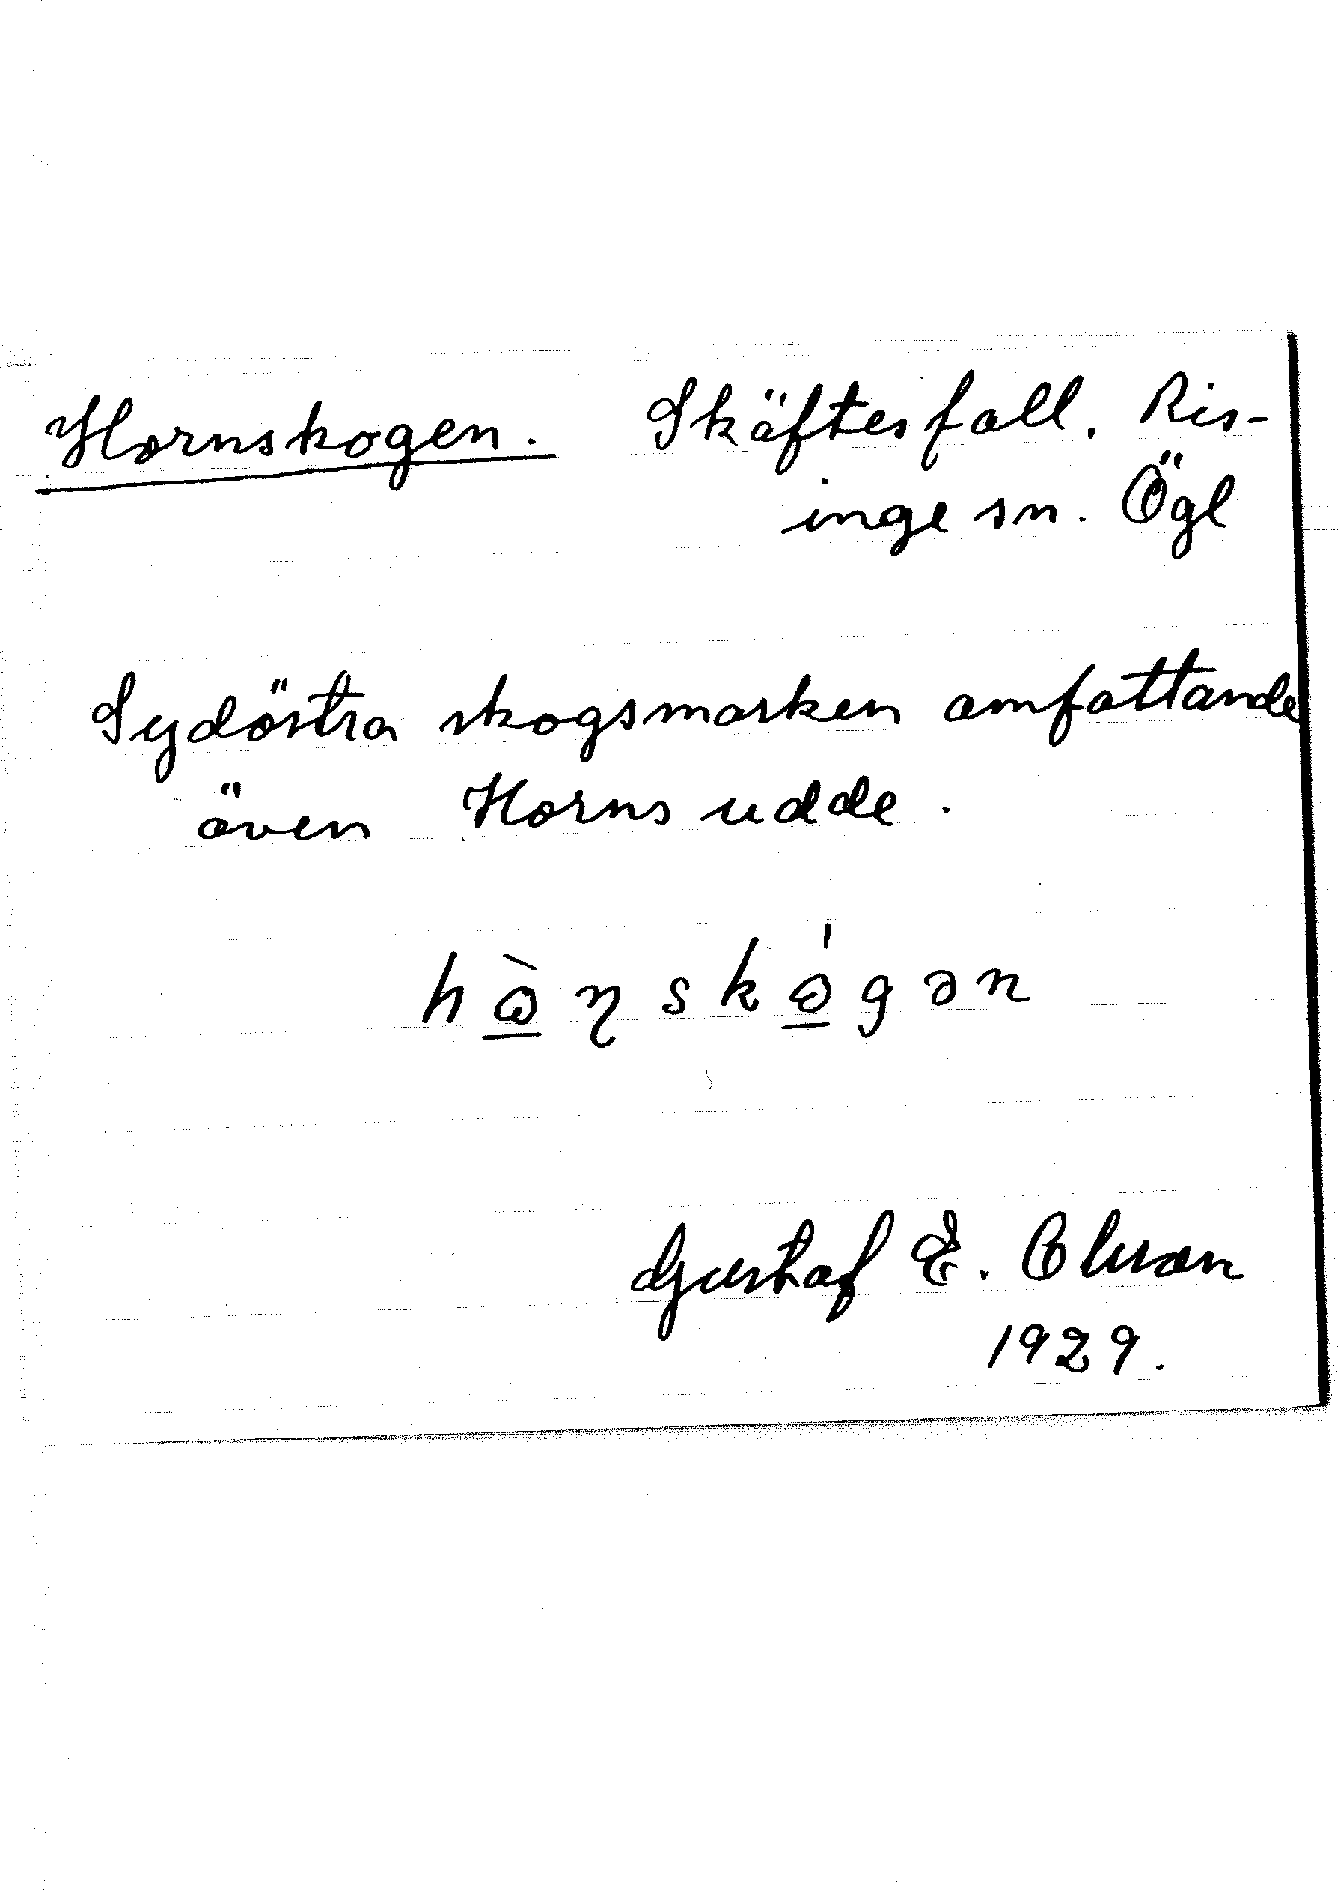 Hornskogen. Skäftesfall. Ris-
inge sn. Ögl
Sydöstra skogsmarken omfattande
även Horns udde.
hɷ̲̀ɳskɷ̲́gən
Gustaf E. Olsson
1929.